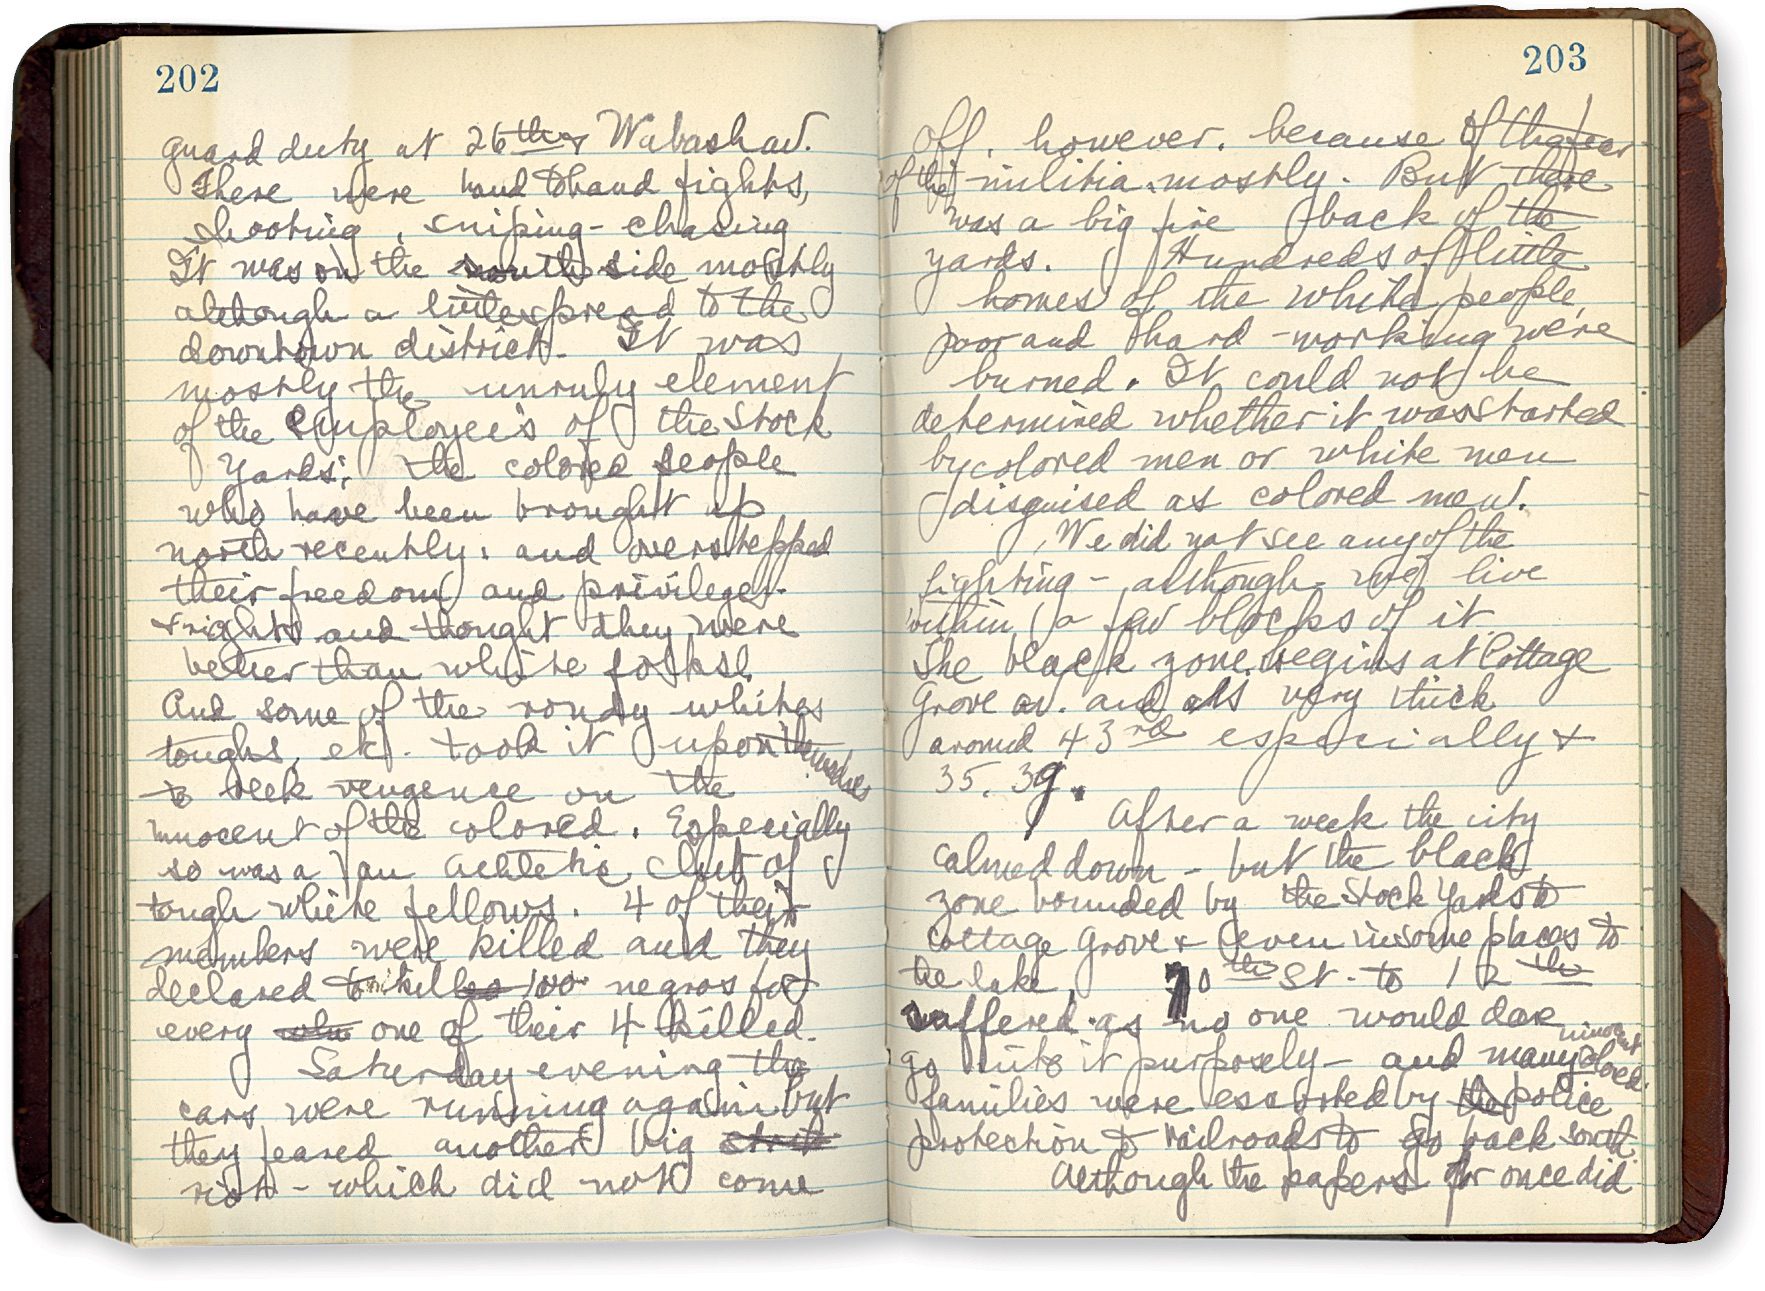 202
guard duty at 26th & Wabash av.
There were hand to hand fights,
shooting, sniping - chasing
It was on the south side mostly
although a little spread to the
downtown district. It was
mostly the unruly element
of the employees of the Stock
Yards; the colored people
who have been brought up
north recently. and overstepped
their freedom and privileges.
& rights and thought they were
better than white folks.
And some of the rowdy whites
toughs, etc. took it upon themselves
to seek vengence on the
innocent of the colored. Especially
so was a an athletic club of
tough white fellows. 4 of their
members were killed and they
declared to kill 100 negros for
every one of their 4 killed.
Saturday evening the
cars were running again but
they feared another big strik
riot - which did not come
203
off. however. because of the fear
of the militia mostly. But there
was a big fire back of the
yards. Hundreds of little
homes of the white people,
poor and hard-working were
burned. It could not be
determined whether it was started
by colored men or white men
disguised as colored men.
We did not see any of the
fighting - although we live
within a few blocks of it
The black zone begins at Cottage
Grove av. and is very thick
around 43rd especially &
35. 39.
After a week the city
calmed down - but the black
zone bounded by the Stock Yards to
Cottage Grove & even in some places to
the lake, 70th St. to 12th
suffered. as no one would dare
go into it purposely - and many innocent colored
families were escorted by the police
protection to railroads to go back south.
Although the papers for once did